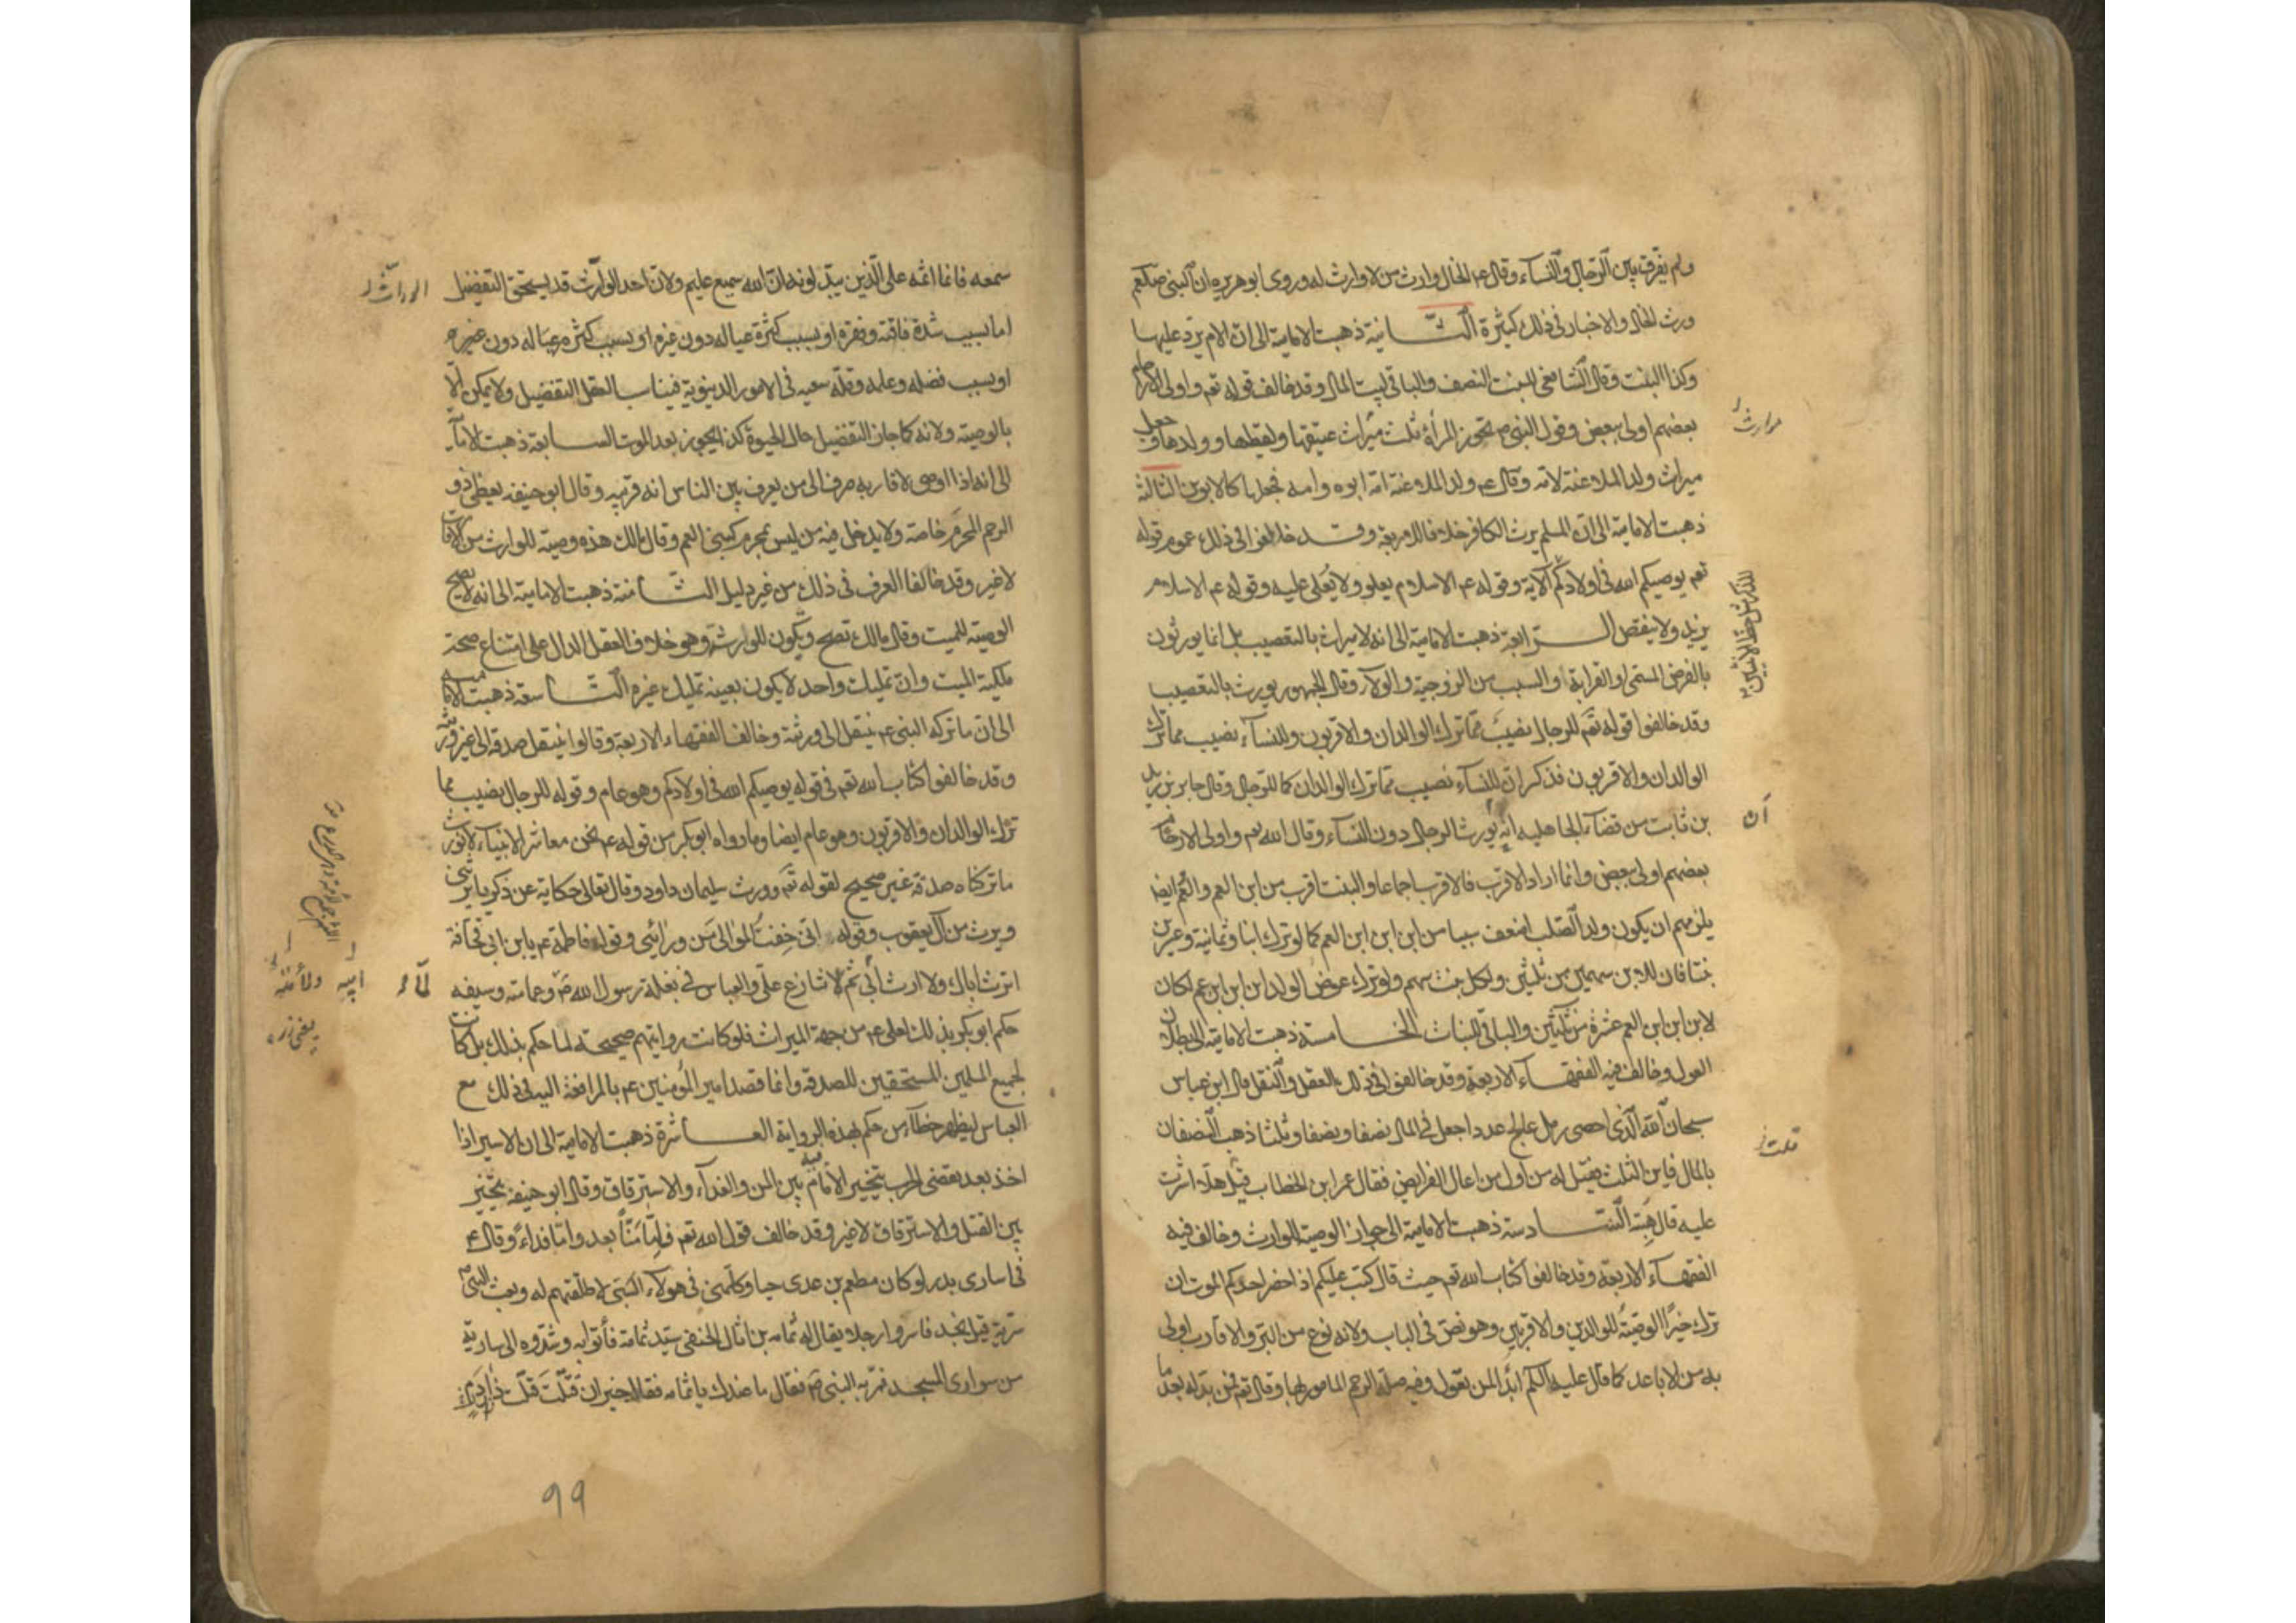 ولم يفرق بين الرجال والنساء وقال ع الخال وارث من لا وارث له وروى ابو هريره ان النبى صلعم
ورث الخال والاخبار فى ذلك كثيرة الثانية ذهبت الامامية الى ان الام يرد عليها
وكذا البنت وقال الشافعى للبنت النصف والباقى لبيت المال وقد خالف قوله تعم واولى الارحام
بعضهم اولى ببعض وقول النبى تحوز المرأة ثلث ميراث عتيقها ولقيطها وولدها وجعل
ميراث ولد الملاعنة لامه وقال ع ولد الملاعنة امه ابوه وامه فجعلها كالابوين الثالثة
ذهبت الامامية الى ان المسلم يرث الكافر خلافا للاربعة وقد خالفوا فى ذلك عموم قوله
تعم يوصيكم الله فى اولادكم الآية وقوله ع الاسلام يعلو ولا يُعلى عليه وقوله ع الاسلام
يزيد ولا ينقص الرابعة ذهبت الامامية الى انه لا ميراث بالتعصيب بل انما يورثون
بالفرض المسمى او القرابة او السبب من الزوجية والولاء وقال الجمهور يورث بالتعصيب
وقد خالفوا قوله تعم للرجال نصيب مما ترك الوالدان والاقربون وللنساء نصيب مما ترك
الوالدان والاقربون فذكر ان للنساء نصيب مما ترك الوالدان كما للرجال وقال جابر بن زيد
بن ثابت من قضاء الجاهلية انه يورث الرجال دون النساء وقال الله تعم واولى الارحام
بعضهم اولى ببعض وانما اراد الاقرب فالاقرب اجماعا والبنت اقرب من ابن العم والعم ايضا
يلزمهم ان يكون ولد الصلب اضعف سببا من ابن ابن ابن العم كما لو ترك ابنا وثمانية وعشرين
بنتا فان للابن سهمين من ثلثين ولكل بنت سهم ولو ترك عوض الولد ابن ابن ابن عم لكان
لابن ابن ابن العم عشرة من ثلثين والباقى للبنات الخامسة ذهبت الامامية الى بطلان
العول وخالف فيه الفقهاء الاربعة وقد خالفوا فى ذلك العقل والنقل قال ابن عباس
سبحان الله الذى احصى رمل عالج عددا جعل فى المال نصفا ونصفا وثلثا ذهب النصفان
بالمال فاين الثلث فقيل له من اول من اعال الفرايض فقال عمر ابن الخطاب قيل هلا اشرت
عليه قال هبته السادسة ذهبت الامامية الى جواز الوصية للوارث وخالف فيه
الفقهاء الاربعة وقد خالفوا كتاب الله تعم حيث قال كتب عليكم اذا حضر احدكم الموت ان
ترك خيرًا الوصيةُ للوالدين والاقربين وهو نص فى الباب ولانه نوع من البر والاقارب اولى
به من الاباعد كما قال عليه السلم ابدأ بمن تعول وفيه صلة الرحم المامور بها وقال تعم فمن بدله بعد ما
ميراث
للذكر مثل حظ الانثيين
ان
قلت
سمعه فانما اثمه على الذين يبدلونه ان الله سميع عليم ولان احد الوارث قد يستحق التفضيل
اما بسبب شدة فاقته وفقره او بسبب كثرة عياله دون غيره او بسبب كثرة عياله دون غيره
او بسبب فضله وعلمه وقلة سعيه فى الامور الدنيوية فيناسب العقل التفضيل ولا يمكن الّا
بالوصية ولانه كما جاز التفضيل حال الحيوة كذا يجوز بعد الموت السابعة ذهبت الامامية
الى انه اذا اوصى لاقاربه صرف الى من يعرف بين الناس انه قريبه وقال ابو حنيفه يعطى ذو
الرحم المحرم خاصة ولا يدخل فيه من ليس بمحرم كبنى العم وقال مالك هذه وصية للوارث من الاقارب
لا غير وقد خالفا العرف فى ذلك من غير دليل الثامنة ذهبت الامامية الى انه لا يصح
الوصية للميت وقال مالك تصح ويكون للوارث وهو خلاف العقل الدال على امتناع صحة
ملكية الميت وان تمليك واحد لا يكون بعينه تمليك غيره التاسعة ذهبت الامامية
الى ان ما تركه النبى ع ينتقل الى ورثته وخالف الفقهاء الاربعة وقالوا ينتقل صدقة الى غير ورثته
وقد خالفوا كتاب الله تعم فى قوله يوصيكم الله فى اولادكم وهو عام وقوله للرجال نصيب مما
ترك الوالدان والاقربون وهو عام ايضا وما رواه ابو بكر من قوله ع نحن معاشر الانبياء لا نورث
ما تركناه صدقة غير صحيح لقوله تعم وورث سليمان داود وقال تعالى حكاية عن زكريا يرثنى
ويرث من آل يعقوب وقوله انى خِفتُ الموالىَ من ورائى وقوله فاطمة ع يابن ابى قحافة
اترث اباك ولا ارث ابى ثم لا تنازع على والعباس فى بغلة رسول الله ص وعمامته وسيفه
حكم ابو بكر بذلك لعلى ع من جهة الميراث فلو كانت روايتهم صحيحة لما حكم بذلك بل كانت
لجميع المسلمين المستحقين للصدقة وانما قصد امير المؤمنين ع بالمرافعة اليه فى ذلك مع
العباس ليظهر خطأ من حكم بهذه الرواية العاشرة ذهبت الامامية الى ان الاسير اذا
اخذ بعد تقضى الحرب يتخير الامام فيه بين المن والفداء والاسترقاق وقال ابو حنيفة يتخير
بين القتل والاسترقاق لا غير وقد خالف قول الله تعم فامّا مَنّاً بعد وامّا فداءً وقال ع
فى اسارى بدر لو كان مطعم بن عدى حيا وكلّمنى فى هولاء النتنى لاطلقتهم له وبعث النبى
سرية قبل نجد فاسروا رجلا يقال له ثمامه بن اثال الحنفى سيد ثمامة فأتوا به وشدّوه الى سارية
من سوارى المسجد فمر به النبى ص فقال ما عندك يا ثمامه فقال خير ان قتلت قتلت ذا دم
الوراث
لما
ابيه
99